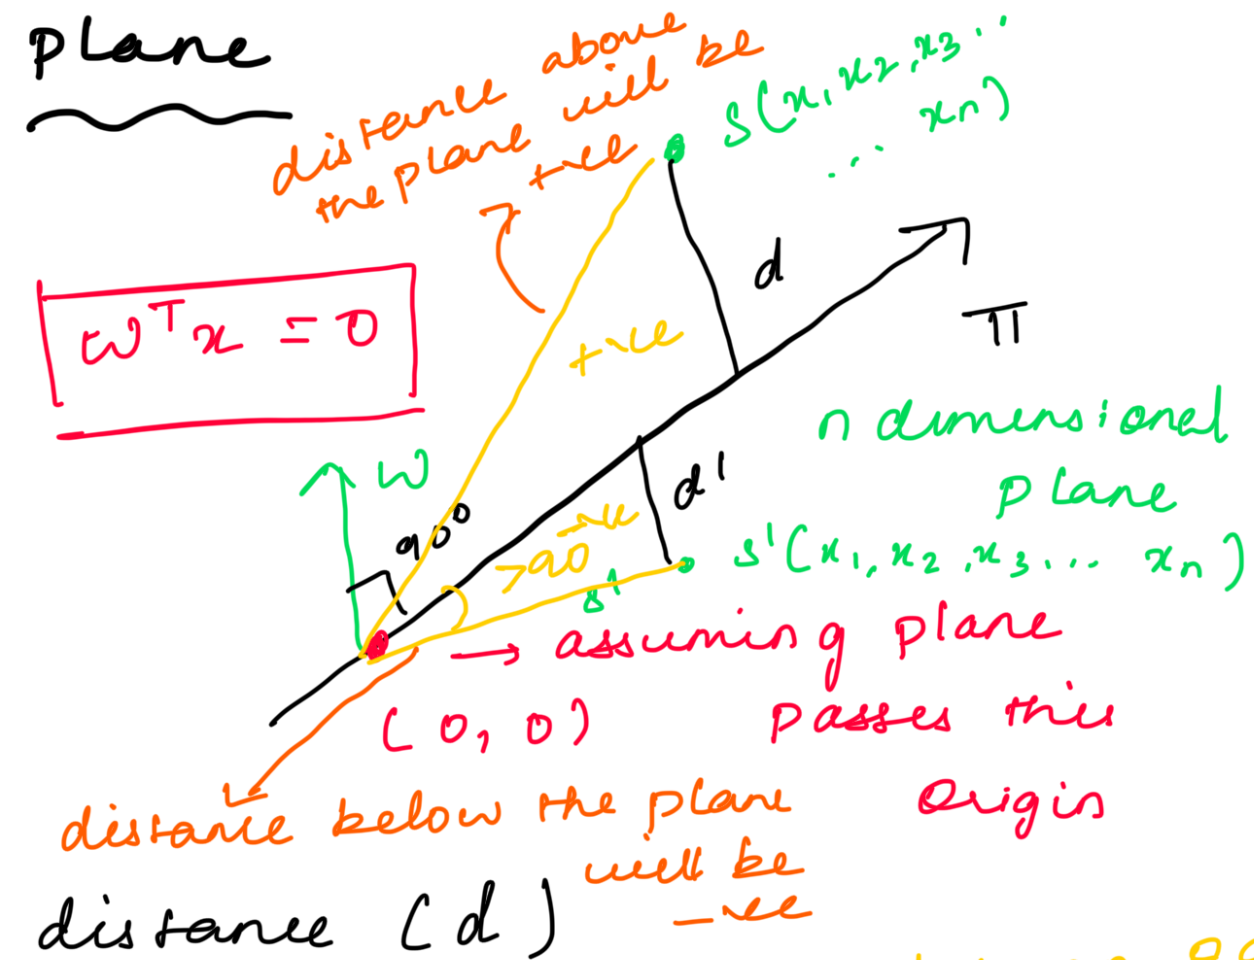 plane
distance above
the plane will be
+ve
S(x1, x2, x3 ..
... xn)
d
π
w^T x = 0
+ve
n dimensional
plane
w
90°
d'
-ve
>90
s'
s'(x1, x2, x3... xn)
→ assuming plane
passes this
origin
(0, 0)
distance below the plane
will be
-ve
distance (d)